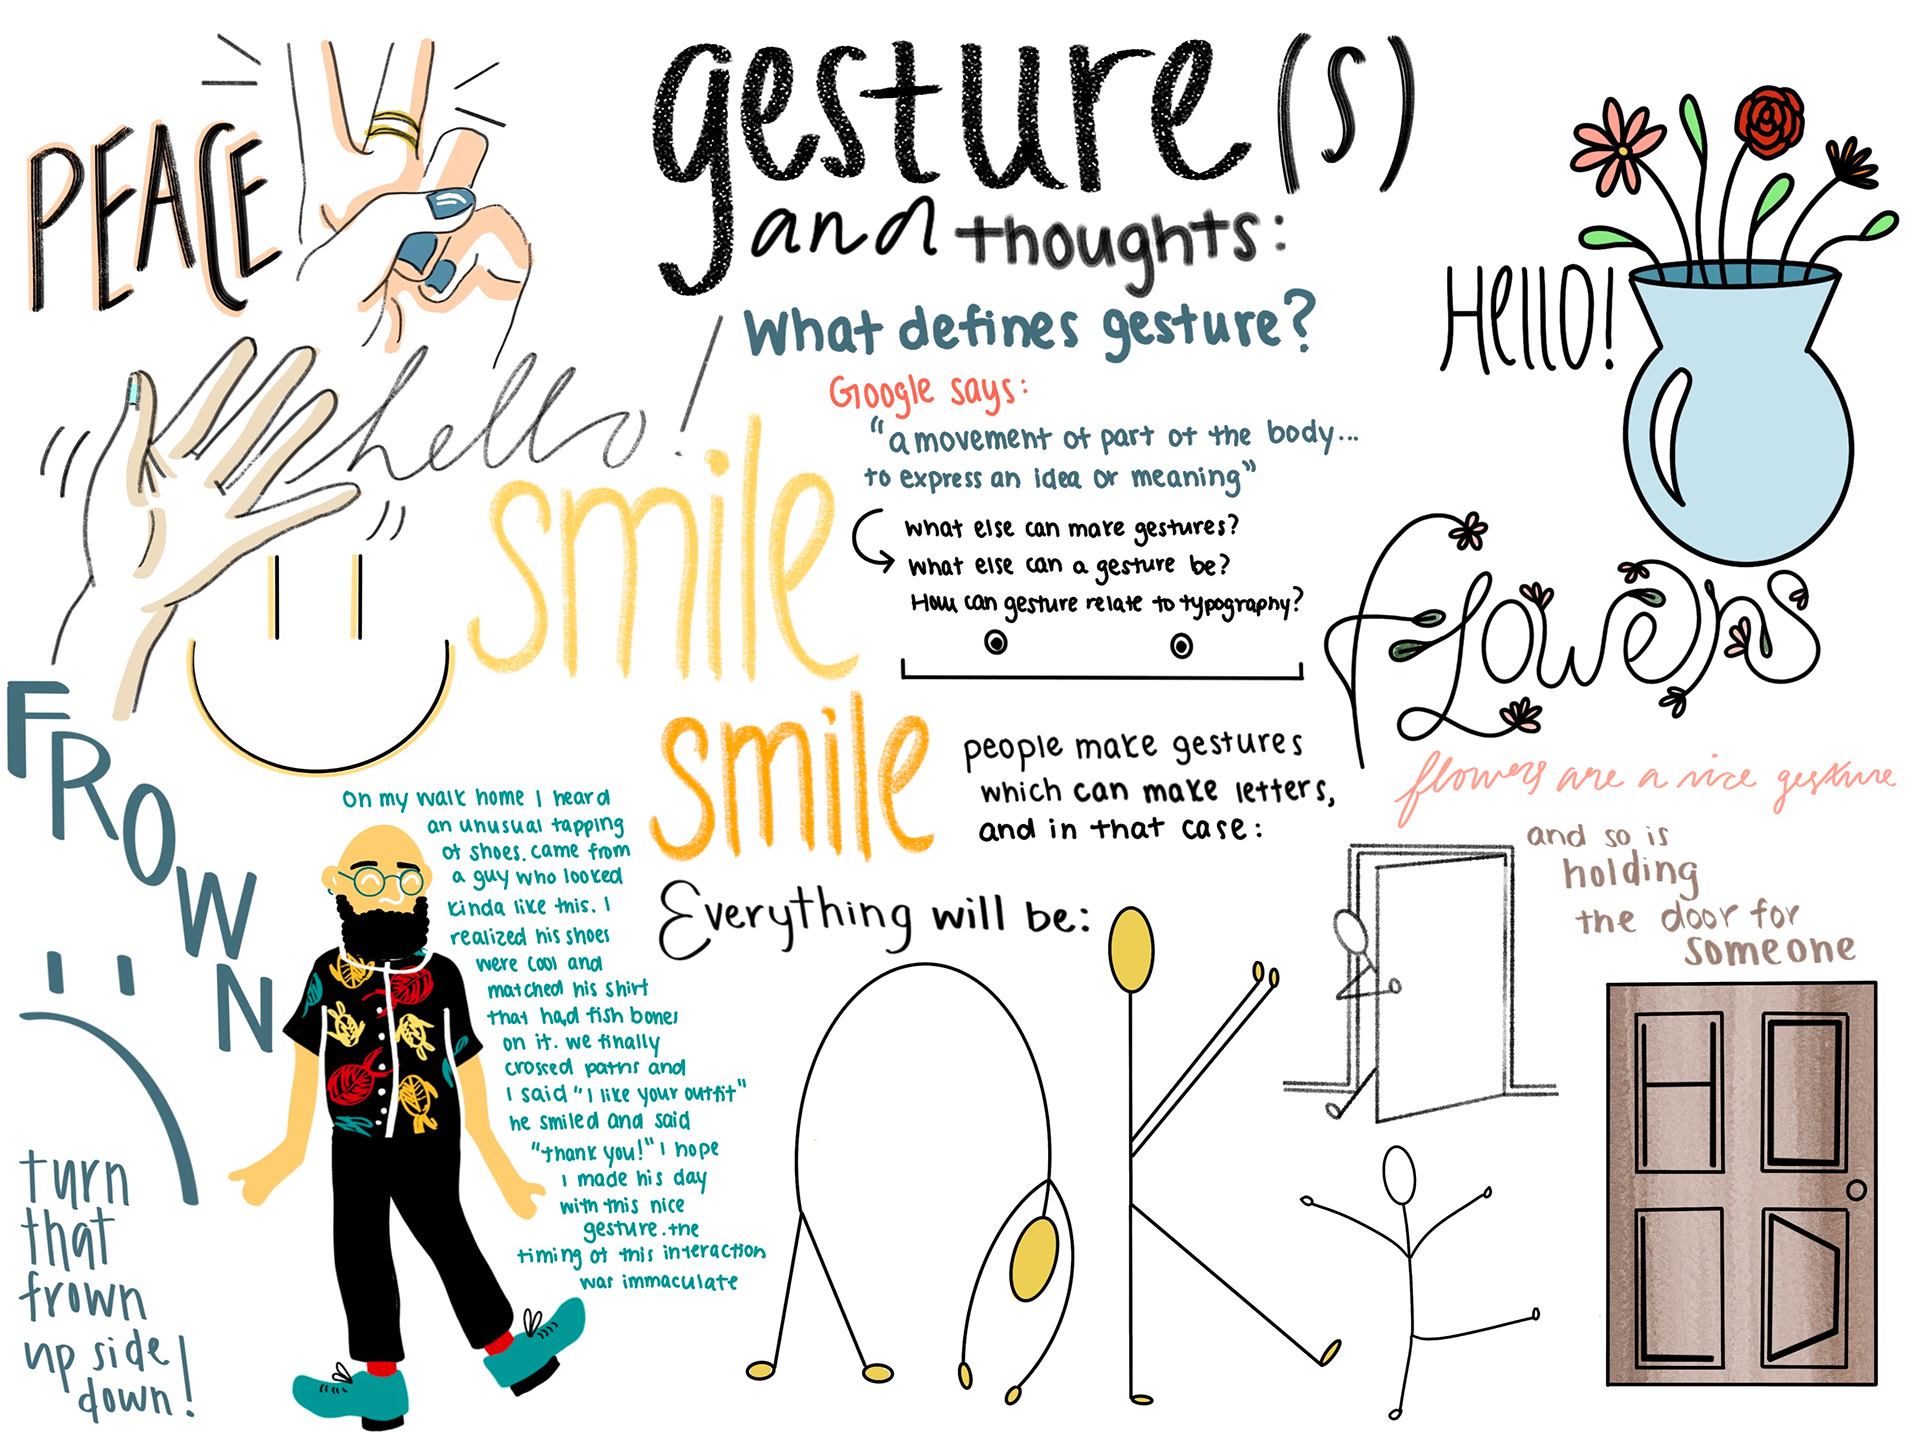 PEACE
gesture(s)
and thoughts:
What defines gesture?
Google says:
"a movement of part of the body...
to express an idea or meaning"
What else can make gestures?
What else can a gesture be?
How can gesture relate to typography?
hello!
smile
smile
Hello!
FLowers
flowers are a nice gesture
and so is
holding
the door for
someone
people make gestures
which can make letters,
and in that case:
Everything will be:
OK
FROWN
turn
that
frown
up side
down!
On my walk home I heard
an unusual tapping
of shoes. came from
a guy who looked
kinda like this. I
realized his shoes
were cool and
matched his shirt
that had fish bones
on it. we finally
crossed paths and
I said "I like your outfit"
he smiled and said
"thank you!" I hope
I made his day
with this nice
gesture. the
timing of this interaction
was immaculate
HO
LD